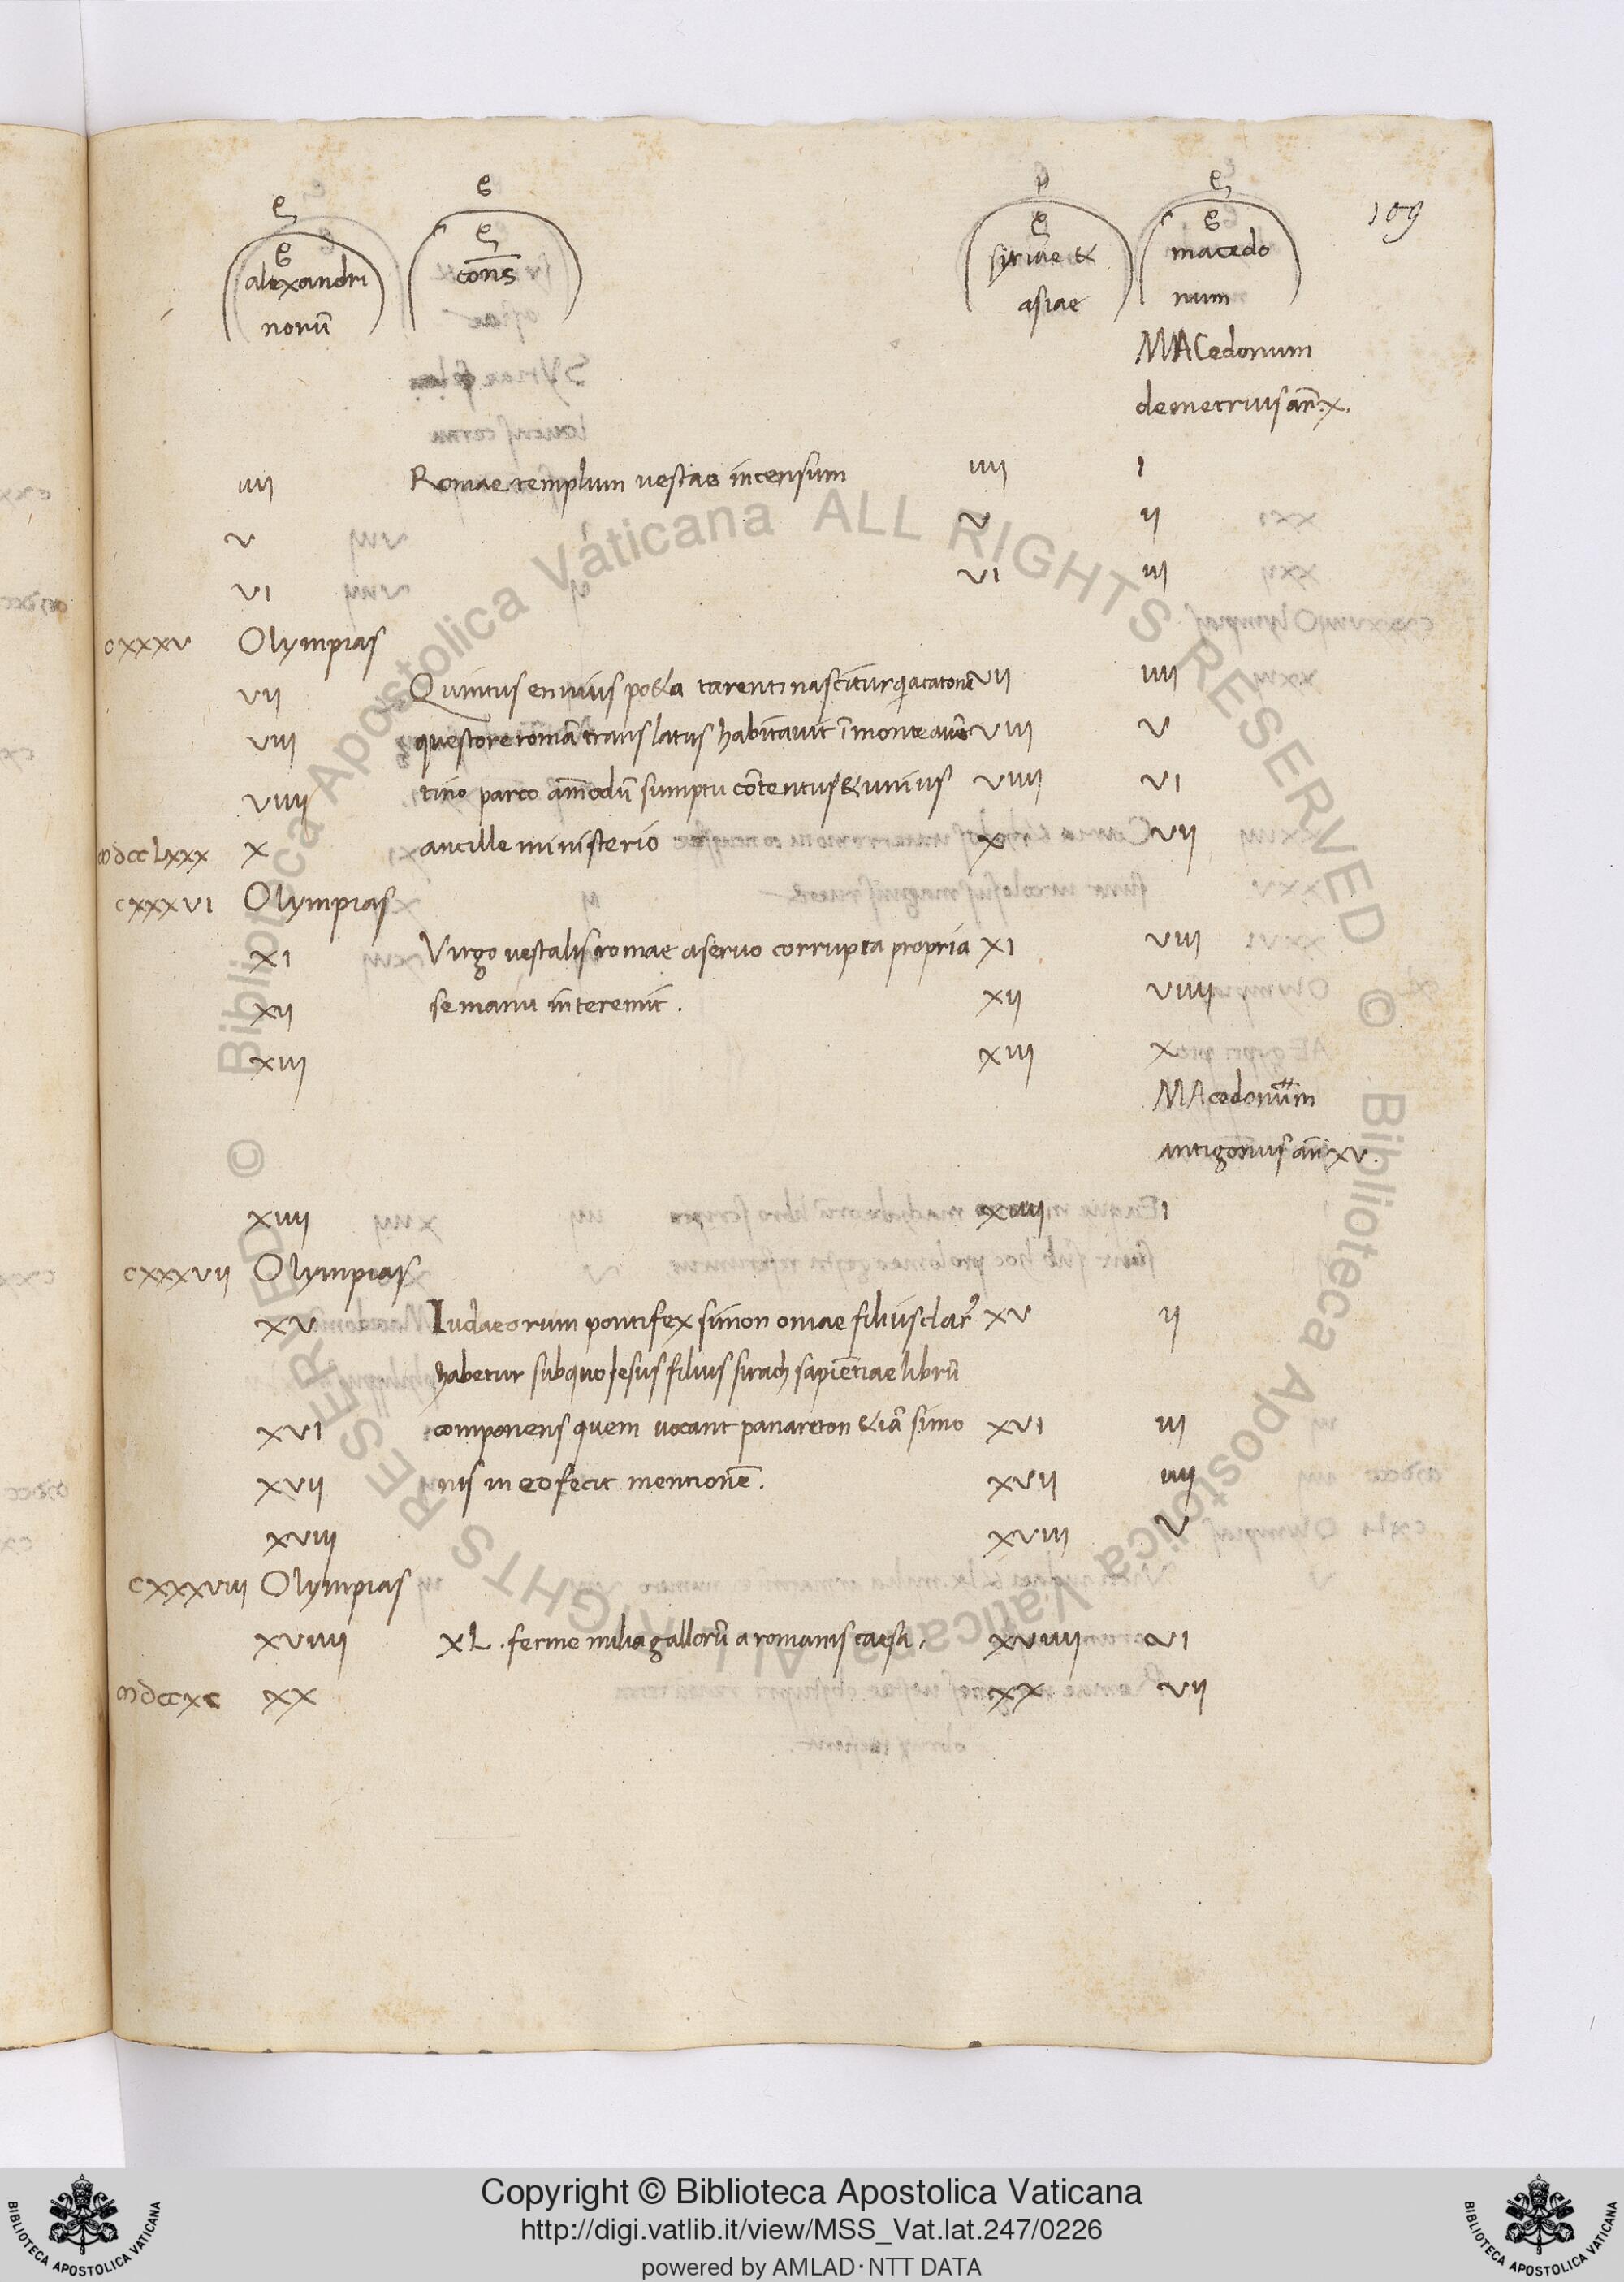 109
alexandri
norū
cons
syriae &
asiae
macedo
num
MACedonum
demetrius an̄. x.
iiii Romae templum vestae incensum iiii i
v v ii
vi vi iii
cxxxv Olympias
vii Quintus ennius po&a tarenti nascitur qi acatone vii iiii
viii questore romā translatus habitavit ī monte avē viii v
viiii tino parco ammodū sumptu cōtentus & unius viiii vi
mdcclxxx x ancille ministerio x vii
cxxxvi Olympias
xi Virgo vestalis romae aservo corrupta propria xi viii
xii se manu interemit. xii viiii
xiii xiii x
MAcedonum
antigonus an̄ xv.
xiiii xiiii i
cxxxvii Olympias
xv Iudaeorum pontifex simon oniae filius clar⁹ xv ii
habetur subquo Iesus filius sirach sapiētiae librū
xvi componens quem vocant panareton &iā simo xvi iii
xvii nis in eo fecit mentionē. xvii iiii
xviii xviii v
cxxxviii Olympias
xviiii XL. ferme milia gallorū a romanis caesa. xviiii vi
mdccxc xx xx vii
© Biblioteca Apostolica Vaticana ALL RIGHTS RESERVED © Biblioteca Apostolica Vaticana ALL RIGHTS RESERVED
BIBLIOTECA APOSTOLICA VATICANA
Copyright © Biblioteca Apostolica Vaticana
http://digi.vatlib.it/view/MSS_Vat.lat.247/0226
powered by AMLAD·NTT DATA
BIBLIOTECA APOSTOLICA VATICANA